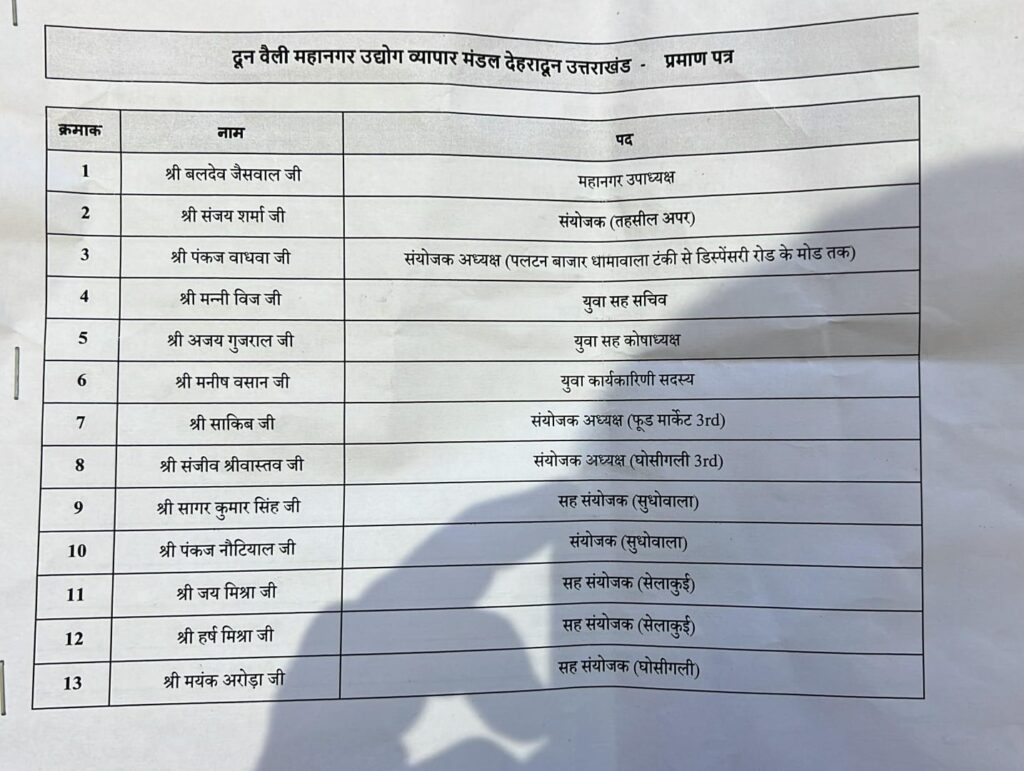 दून वैली महानगर उद्योग व्यापार मंडल देहरादून उत्तराखंड - प्रमाण पत्र
क्रमाक नाम पद
1 श्री बलदेव जैसवाल जी महानगर उपाध्यक्ष
2 श्री संजय शर्मा जी संयोजक (तहसील अपर)
3 श्री पंकज वाधवा जी संयोजक अध्यक्ष (पलटन बाजार धामावाला टंकी से डिस्पेंसरी रोड के मोड तक)
4 श्री मन्नी विज जी युवा सह सचिव
5 श्री अजय गुजराल जी युवा सह कोषाध्यक्ष
6 श्री मनीष वसान जी युवा कार्यकारिणी सदस्य
7 श्री साकिब जी संयोजक अध्यक्ष (फूड मार्केट 3rd)
8 श्री संजीव श्रीवास्तव जी संयोजक अध्यक्ष (घोसीगली 3rd)
9 श्री सागर कुमार सिंह जी सह संयोजक (सुधोवाला)
10 श्री पंकज नौटियाल जी संयोजक (सुधोवाला)
11 श्री जय मिश्रा जी सह संयोजक (सेलाकुई)
12 श्री हर्ष मिश्रा जी सह संयोजक (सेलाकुई)
13 श्री मयंक अरोड़ा जी सह संयोजक (घोसीगली)